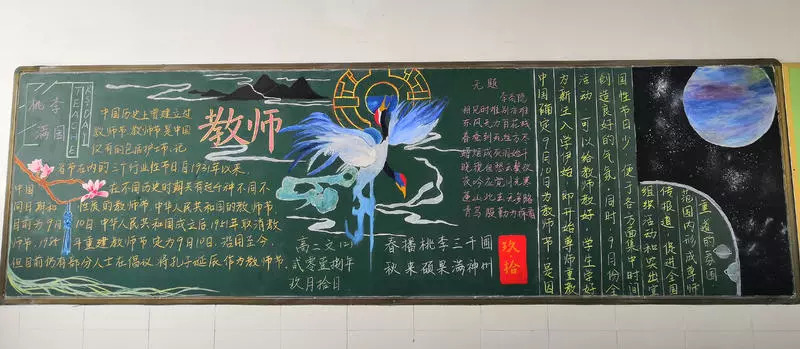 桃李
满园
TEACHER'S DAY
中国历史上曾建立过
教师节,教师节是中国
仅有的包括护士节、记
者节在内的三个行业性节日自1931年以来,
中国 在不同历史时期共有过几种不同不
同日期和 性质的教师节,中华人民共和国的教师节,
目前为9月10日.中华人民共和国成立后,1951年取消教
师节,1985年重建教师节定为9月10日.沿用至今,
但目前仍有部分人士在倡议将孔子诞辰作为教师节.
教师
无题
李商隐
相见时难别亦难
东风无力百花残
春蚕到死丝方尽
蜡炬成灰泪始干
晓镜但愁云鬓改
夜吟应觉月光寒
蓬山此去无多路
青鸟殷勤为探看
高二文(2)
贰零壹捌年
玖月拾日
春播桃李三千圃
秋来硕果满神州
玖·拾
中国确定9月10日为教师节,是因
为新生入学伊始,即开始尊师重教
活动,可以给教师教好、学生学好
创造良好的气氛.同时,9月份全
国性节日少,便于各方面集中时间
组织活动和突出宣
传报道,促进全国
范围内形成尊师
重道的氛围